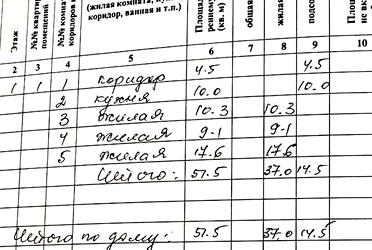 Этаж
№№ кварти
помещений
№№ комна
коридоров
(жилая комната, ку
коридор, ванная и т.п.)
Площад
(кв. м)
общая
жилая
подсо
Площ
не вк
2 3 4 5 6 7 8 9 10
1 1 1 коридор 4.5 4.5
2 кухня 10.0 10.0
3 жилая 10.3 10.3
4 жилая 9-1 9-1
5 жилая 17.6 17.6
Итого: 51.5 37.0 14.5
Итого по дому: 51.5 37.0 14.5